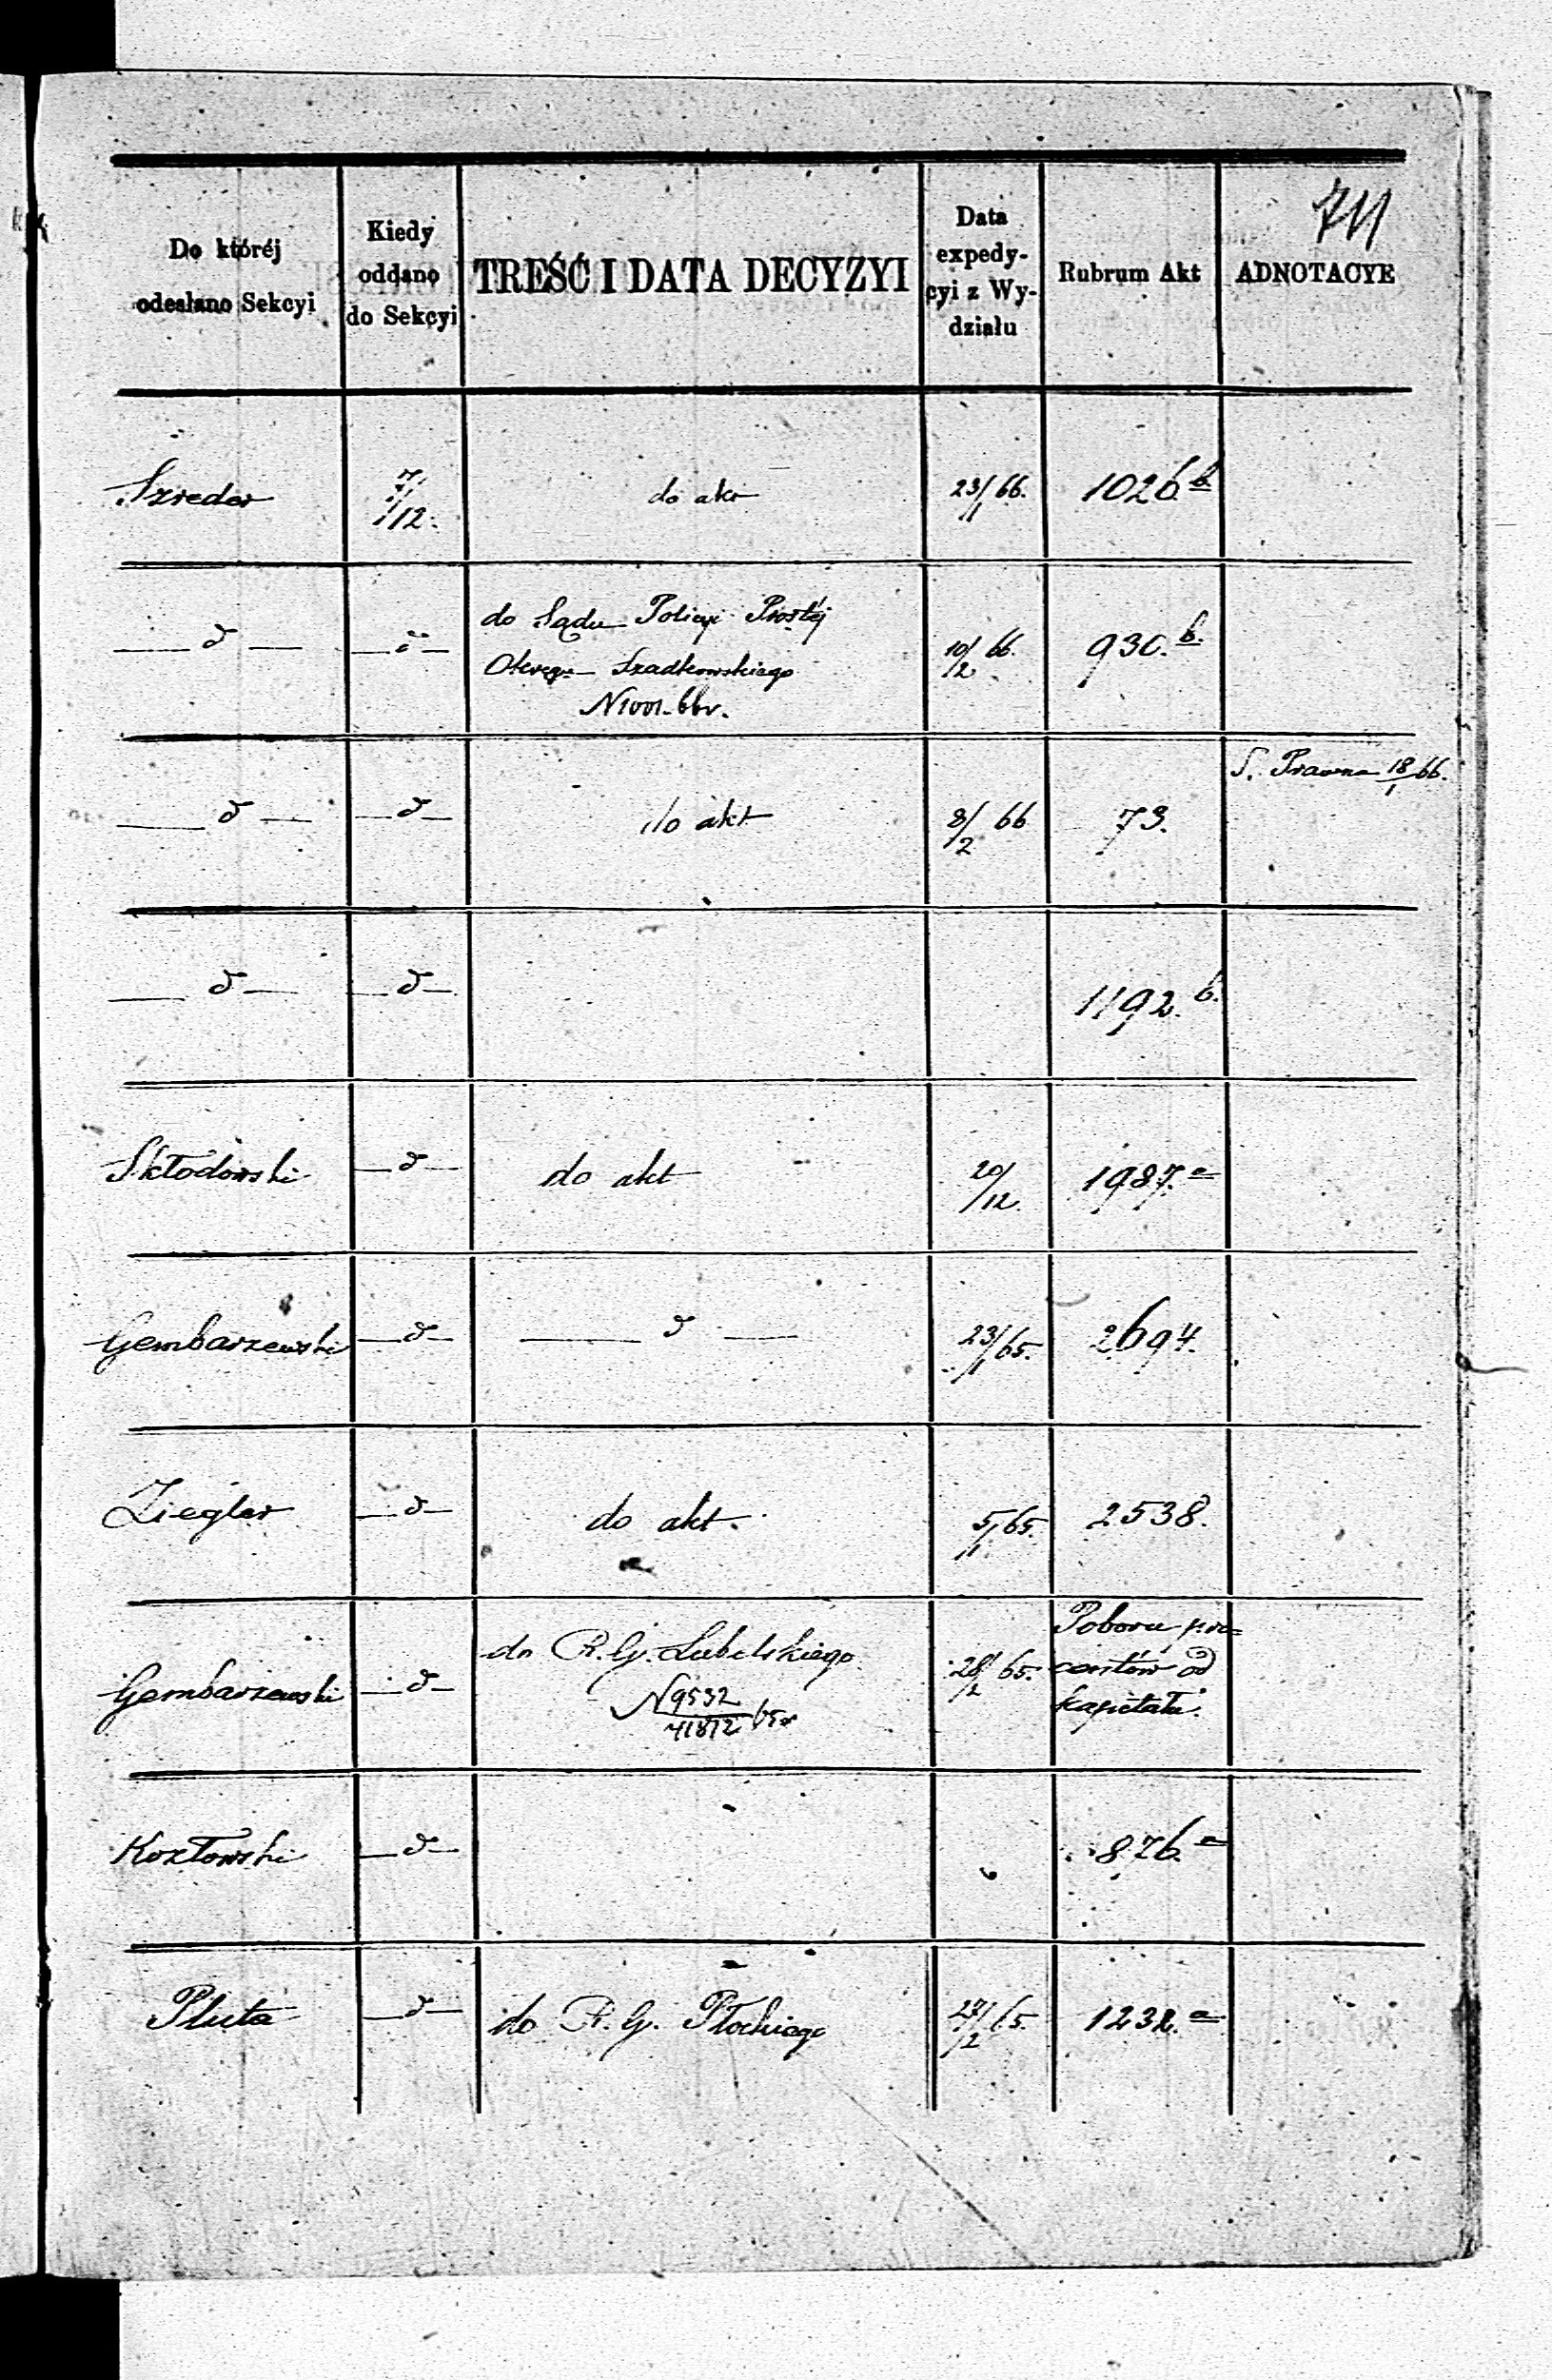 711
Do któréj
odesłano Sekcyi
Kiedy
oddano
do Sekcyi
TREŚĆ I DATA DECYZYI
Data
expedy-
cyi z Wy-
działu
Rubrum Akt
ADNOTACYE
Szreder 7/12. do akt 23/1 66. 1026 b
— d — — d — do Sądu Policyi Prostéj
Okręgu Szadkowskiego 10/2 66. 930. b.
N 1001. 66r.
S. Prawna 18/1 66.
— d — — d — do akt 8/2 66 73.
— d — — d — 1192. b.
Skłodowski — d — do akt 20/12. 1987. a
Gembarzewski — d — — d — 23/1 65. 2694.
Ziegler — d — do akt. 5/1 65. 2538.
do R. G. Lubelskiego Poboru pro=
Gembarzewski — d — N 9532/71872 65r 28/2 65. centów od
kapitału.
Kozłowski — d — 876. a
Pluta — d — do R. G. Płockiego 27/2 65. 1232. a